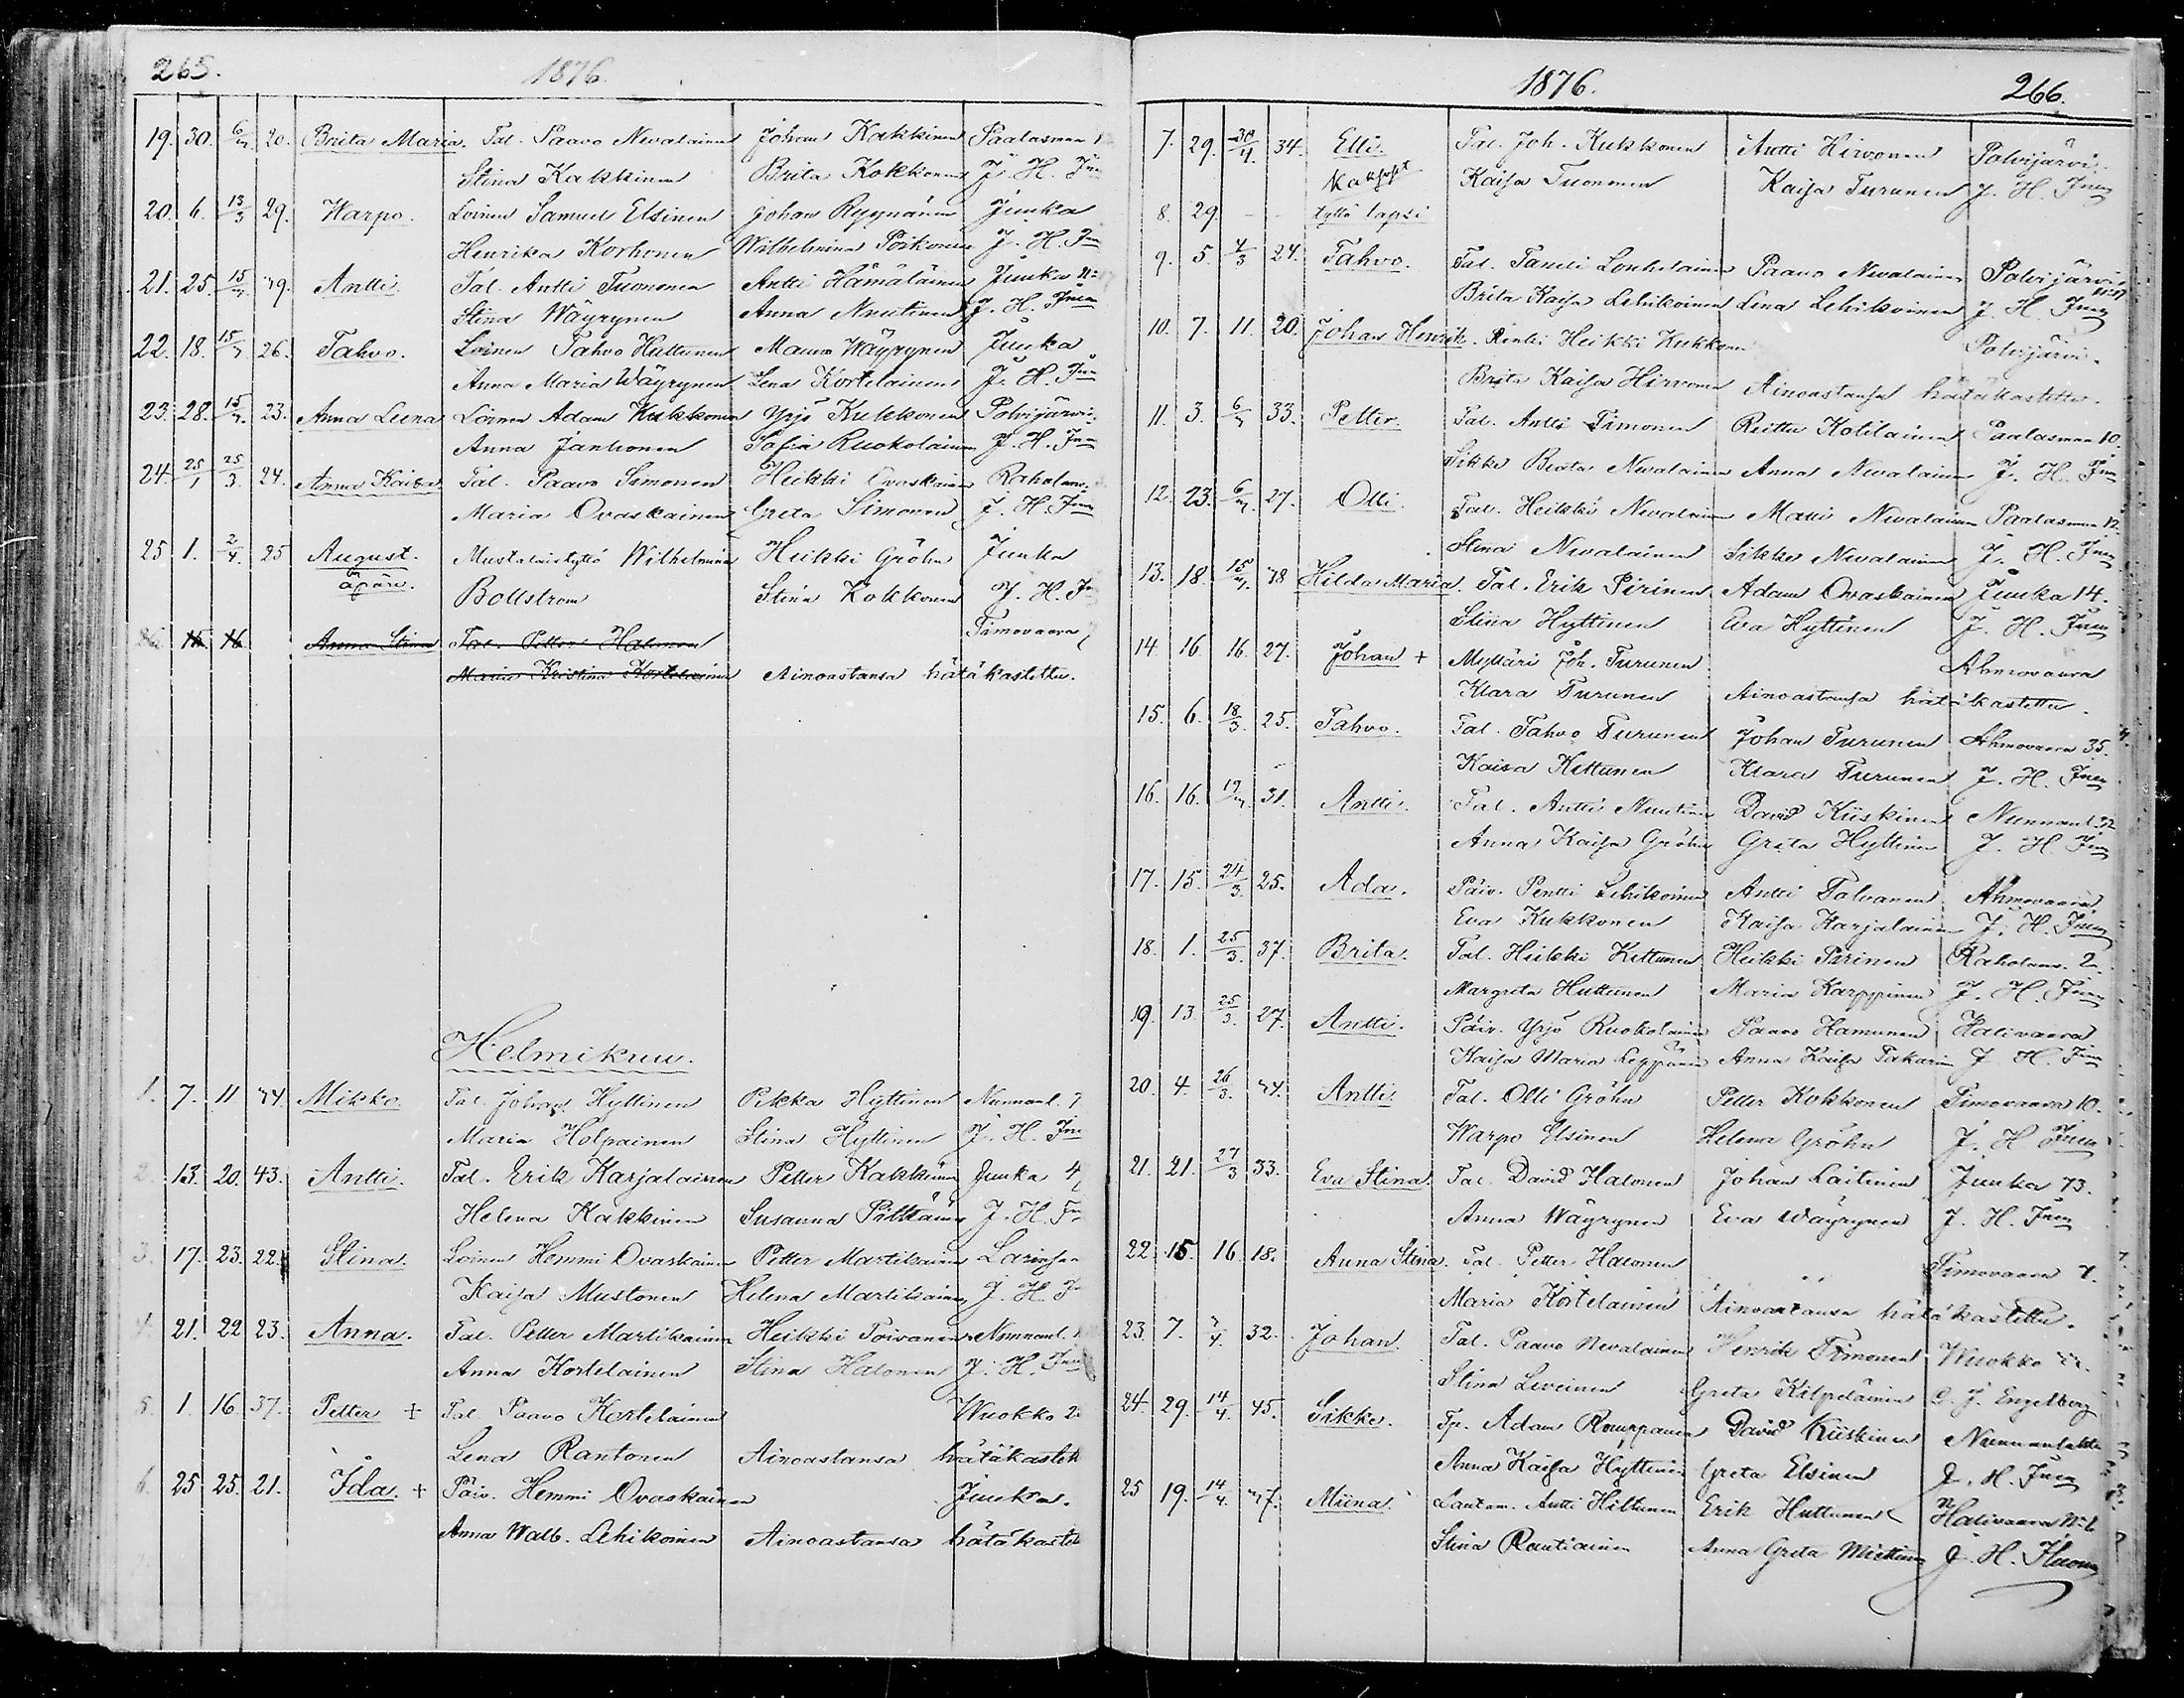 265.
1876.
19. 30. 6/3 20. Brita Maria. Tal. Paavo Nevalainen Johan Kakkinen Paalasmaa
Stina Kakkinen Brita Kokkonen J. H.
20. 6. 13/3 29. Warpo. Loinen Samuel Elsinen Johan Ryynänen Juuka
Henrika Korhonen Wilhelmina Poikonen J. H.
21. 25. 15/3 39. Antti. Tal. Antti Tuononen Antti Hämäläinen Juuka
Stina Wäyrynen Anna Nuutinen J. H.
22. 18. 15/3 26. Tahvo. Loinen Tahvo Huttunen Mauno Wäyrynen Juuka
Anna Maria Wäyrynen Lena Kortelainen J. H.
23. 28. 15/3 23. Anna Leena Loinen Adam Kukkonen Yrjö Kukkonen Polvijärvi.
Anna Janhonen Sofia Ruokolainen J. H.
24. 25/1 25/3. 24. Anna Kaisa Tal. Paavo Simonen Heikki Ovaskainen Raholanv.
Maria Ovaskainen Greta Simonen J. H.
25 1. 2/4. 25 August. Mustalaistyttö Wilhelmina Heikki Gröhn Juuka
äpäre. Bollström Stina Kokkonen J. H.
15 16 Anna Stina Tal. Petter Halonen Timovaara
Maria Kristina Kortelainen Ainoastansa hätäkastettu.
Helmikuu.
1. 7. 11 34. Mikko. Tal. Johan Hyttinen Pekka Hyttinen Nunnanl. 7
Maria Holpainen Stina Hyttinen J. H.
2. 13. 20. 43. Antti. Tal. Erik Karjalainen Petter Kakkinen Juuka 4
Helena Kakkinen Susanna J. H.
3. 17. 23. 22. Stina. Loinen Hemmi Ovaskainen Petter Martikainen
Kaisa Mustonen Helena Martikainen J. H.
4. 21. 22 23. Anna. Tal. Petter Martikainen Heikki Toivanen Nunnanl.
Anna Kortelainen Stina Halonen J. H.
5. 1. 16. 37. Petter + Tal. Paavo Kortelainen Wuokko
Lena Rantonen Ainoastansa hätäkastet
6. 25 25. 21. Ida. + Päiv. Hemmi Ovaskainen Juuka.
Anna Walb. Lehikoinen Ainoastansa hätäkastet
1876.
266.
7. 29. 30/4. 34. Elli. Tal. Joh. Kukkonen Antti Hirvonen Polvijärvi.
Kaisa Tuononen Kaisa Turunen J. H.
8. 29. - - tyttö lapsi
9. 5. 4/3 24. Tahvo. Tal. Taneli Lonkilainen Paavo Nevalainen Polvijärvi
Brita Kaisa Lehikoinen Lena Lehikoinen J. H.
10. 7. 11. 20. Johan Henrik. Renki Heikki Kukkonen Polvijärvi.
Brita Kaisa Hirvonen Ainoastansa hätäkastettu.
11. 3. 6/3 33. Petter. Tal. Antti Timonen Reittu Kotilainen Paalasmaa 10.
Sikke Beata Nevalainen Anna Nevalainen J. H.
12. 23. 6/3. 27. Olli. Tal. Heikki Nevalainen Matti Nevalainen Paalasmaa 12.
Stina Nevalainen Sikke Nevalainen J. H.
13. 18. 15/3. 38 Hilda Maria. Tal. Erik Pirinen Adam Ovaskainen Juuka 14.
Stina Hyttinen Eva Hyttinen J. H.
14. 16. 16. 27. Johan + Mylläri Joh. Turunen Ahmovaara
Klara Turunen Ainoastansa hätäkastettu.
15. 6. 18/3. 25. Tahvo. Tal. Tahvo Turunen Johan Turunen Ahmovaara 35.
Kaisa Kettunen Klara Turunen J. H.
16. 16. 19/3. 31. Antti. Tal. Antti Nuutinen David Kiiskinen Nunnanl. 32
Anna Kaisa Gröhn Greta Hyttinen J. H.
17. 15. 24/3. 25. Ada. Päiv. Pentti Lehikoinen Antti Tolvanen Ahmovaara
Eva Kukkonen Kaisa Karjalainen J. H.
18. 1. 25/3. 37. Brita. Tal. Heikki Kettunen Heikki Parinen Raholanv. 2.
Margreta Huttunen Maria Karppinen J. H.
19. 13. 25/3. 27. Antti. Päiv. Yrjö Ruokolainen Paavo Hamunen Halivaara
Kaisa Maria Leppänen Anna Kaisa Pakarin J. H.
20. 4. 26/3. 34. Antti. Tal. Olli Gröhn Petter Kokkonen Timovaara 10.
Warpo Elsinen Helena Gröhn J. H.
21. 21. 27/3 33. Eva Stina. Tal. David Halonen Johan Laitinen Juuka 73.
Anna Wäyrynen Eva Wäyrynen J. H.
22. 15. 16 18. Anna Stina. Tal. Petter Halonen Timovaara 7.
Maria Kortelainen Ainoastansa hätäkastettu.
23. 7. 3/4. 32. Johan. Tal. Paavo Nevalainen Henrik Timonen Wuokko
Stina Leveinen Greta Kilpeläinen C. J. Engelberg
24. 29. 14/4. 45. Sikke. Tp. Adam Rouppanen David Kiiskinen Nunnanlahti
Anna Kaisa Hyttinen Greta Elsinen J. H.
25 19. 14/4. 37. Miina. Lautam. Antti Hiltunen Erik Huttunen Halivaara
Stina Rautiainen Anna Greta Miettinen J. H.